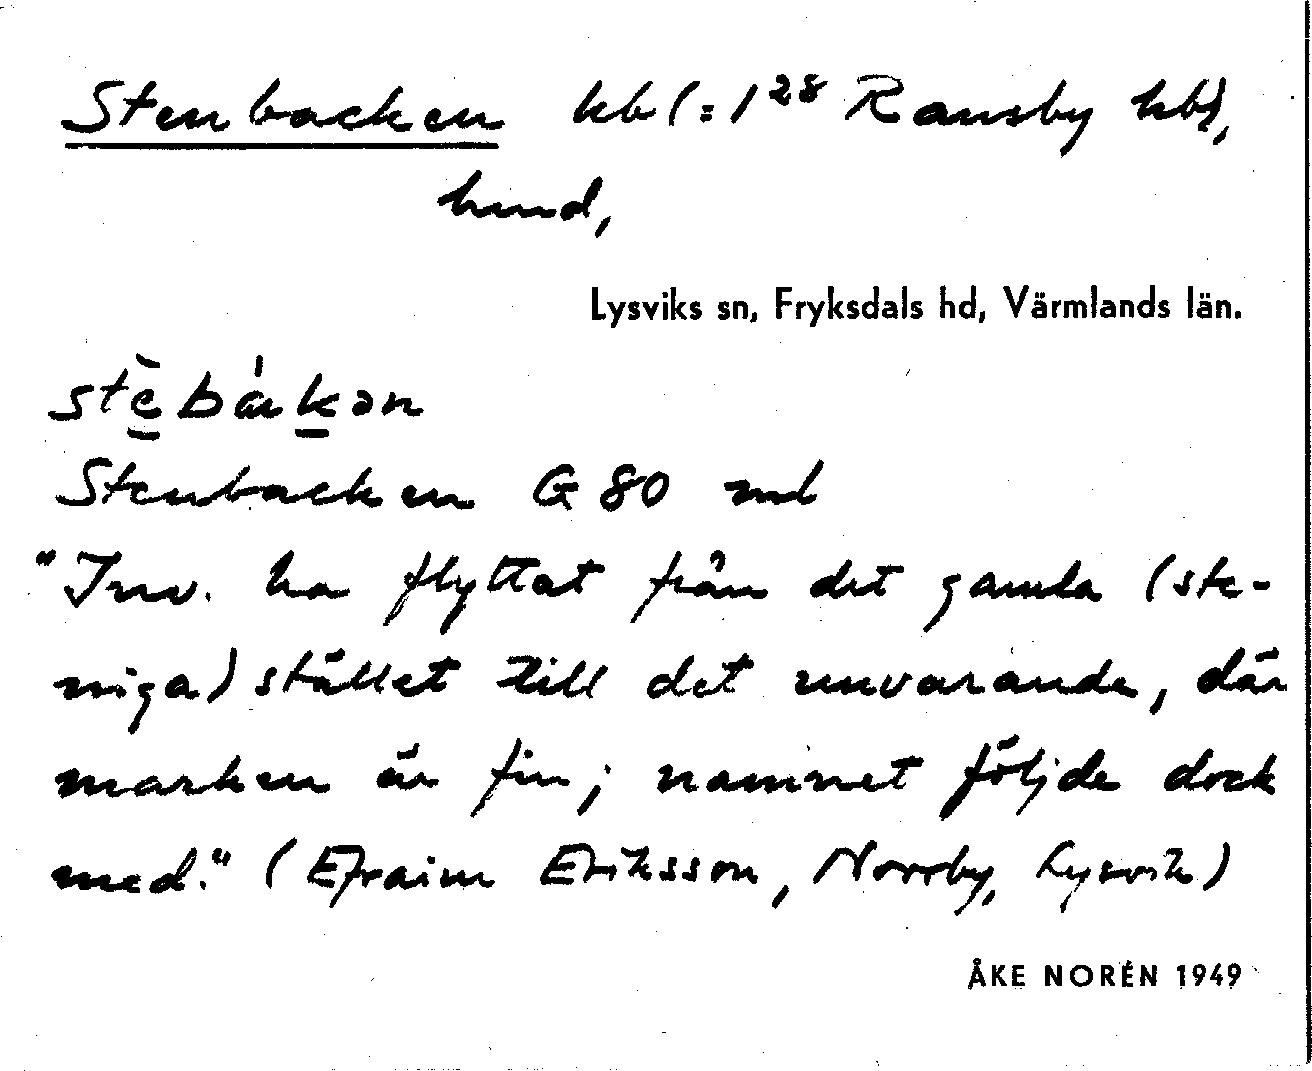 Stenbacken hb (= 1²⁸ Ransby hb),
hmd,
Lysviks sn, Fryksdals hd, Värmlands län.
stè̱báḵən
Stenbacken G 80 md
"Inv. ha flyttat från det gamla (ste-
niga) stället till det nuvarande, där
marken är fin; namnet följde dock
med." (Efraim Eriksson, Norrby, Lysvik)
ÅKE NORÉN 1949